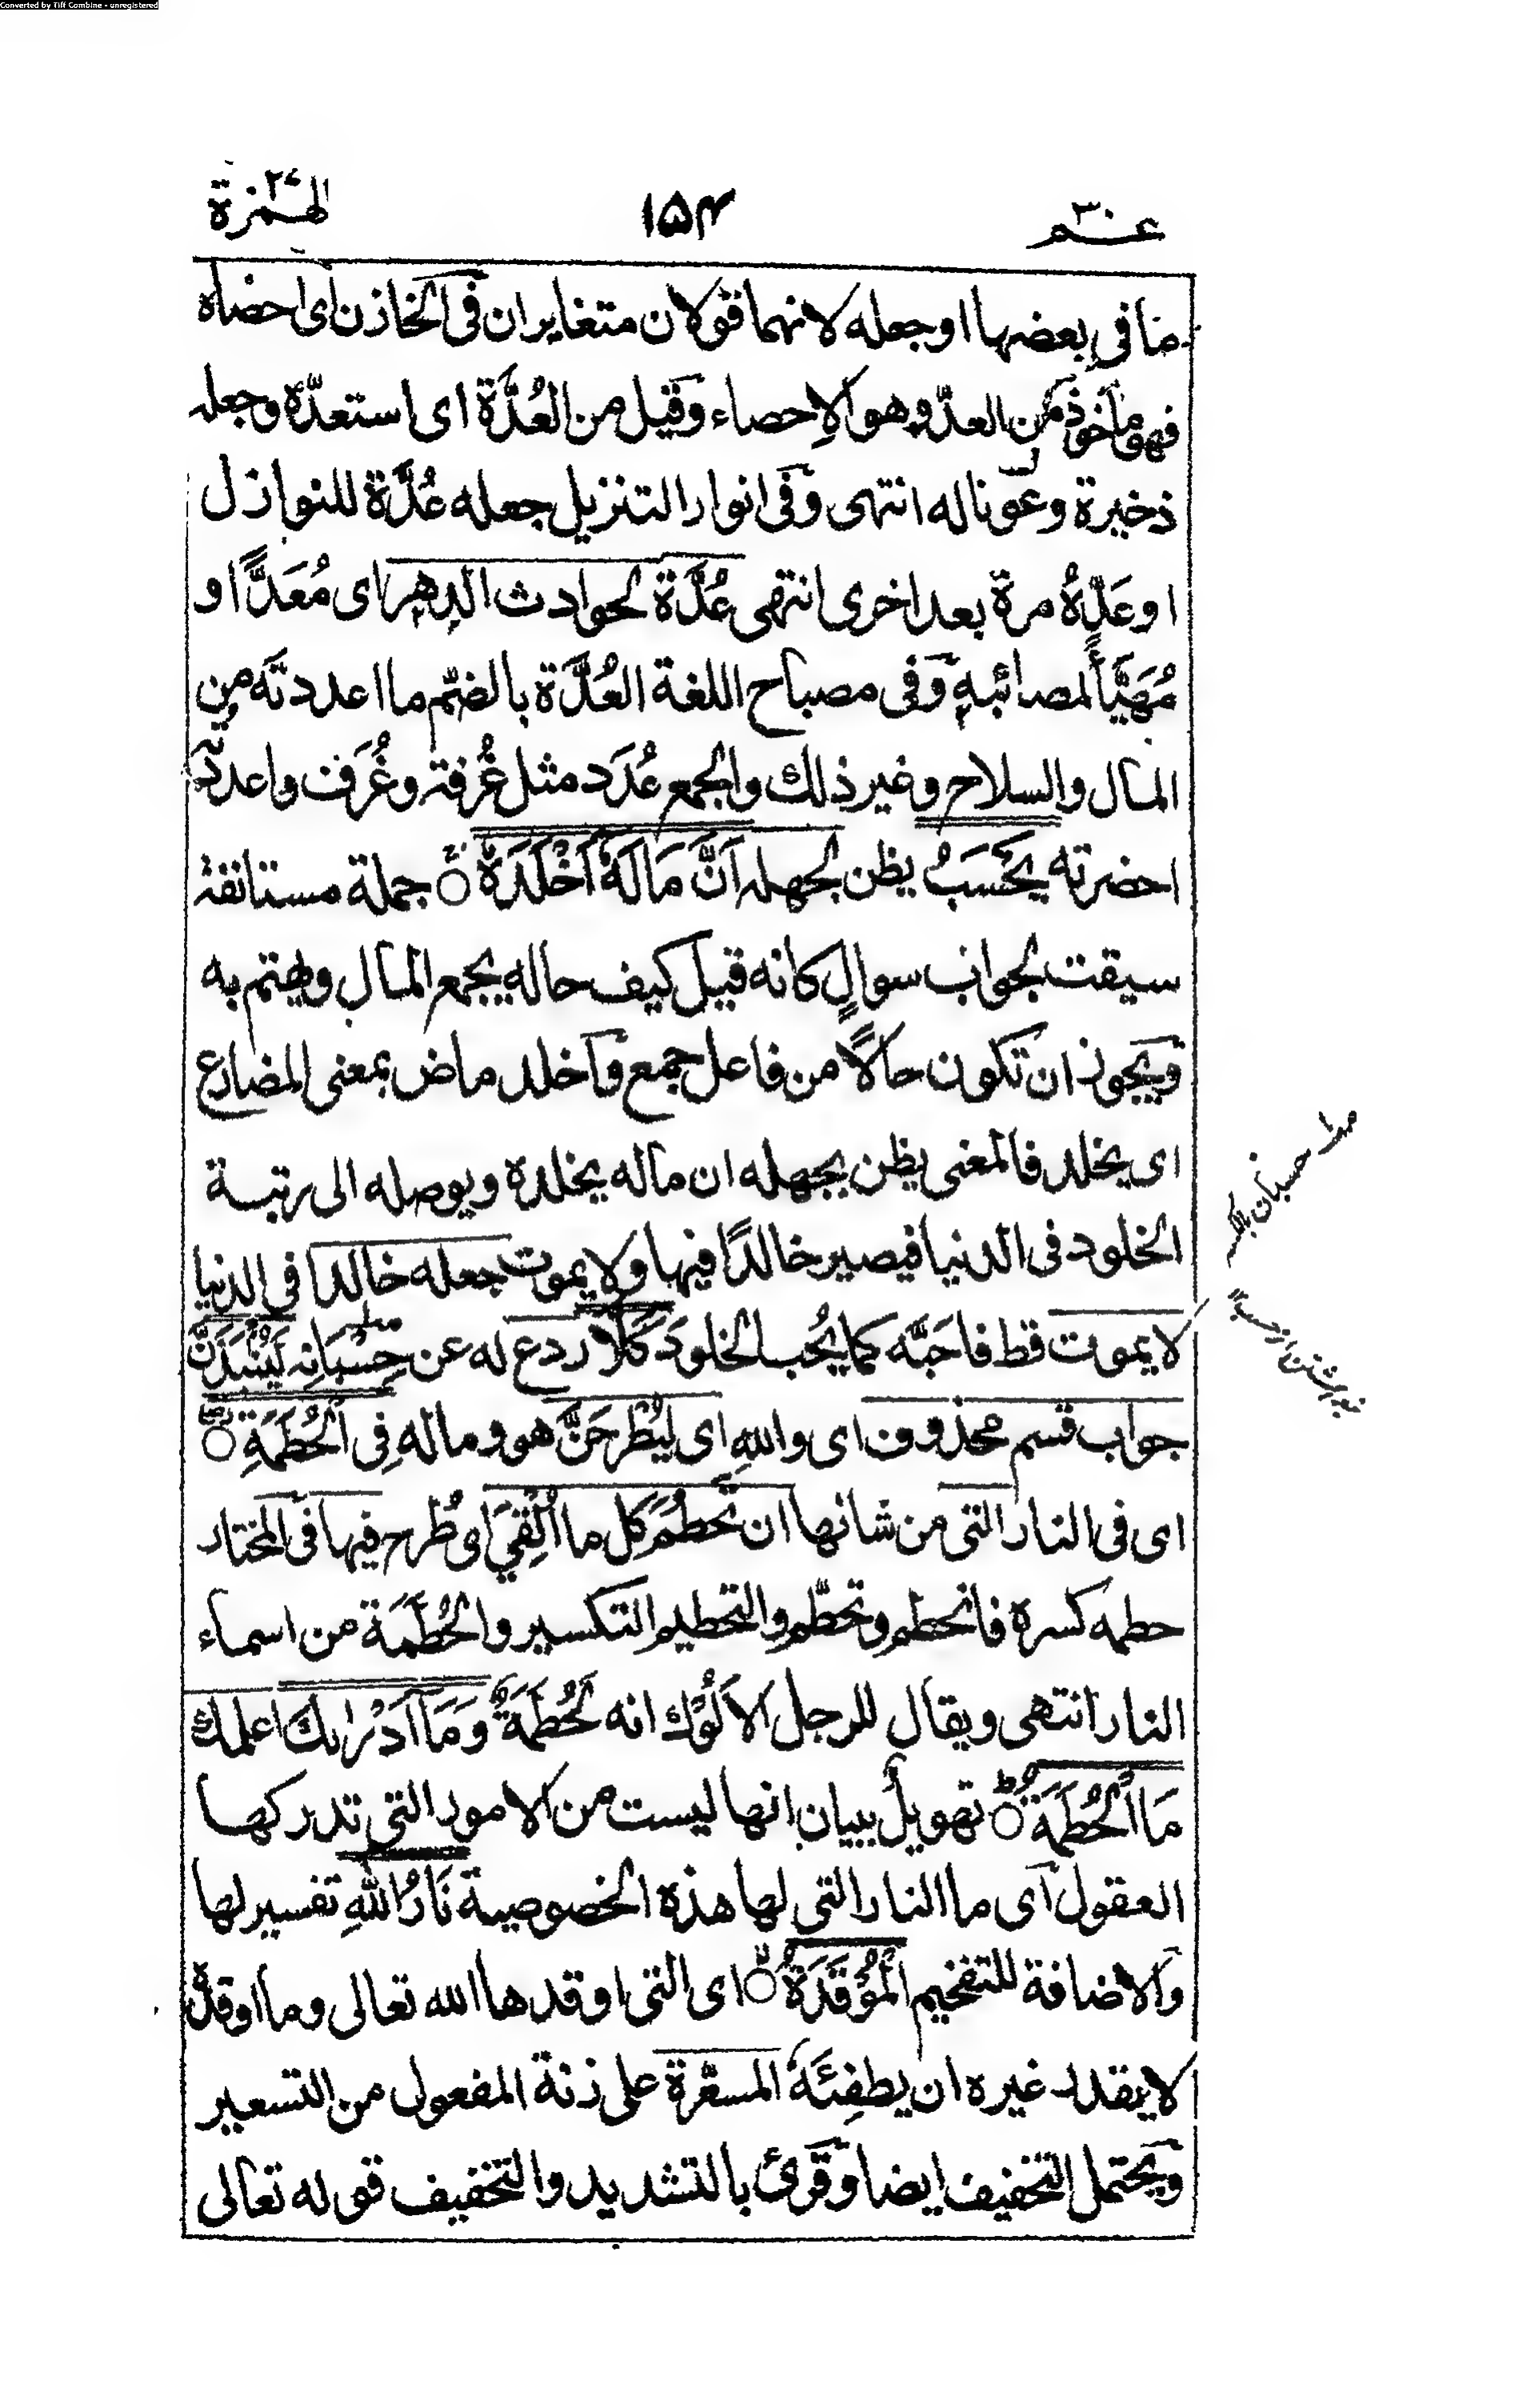 Converted by Tiff Combine - unregistered
عـــم ٣٠
١٥۴
الهمزة
ما فى بعضها او جعله لانهما قولان متغايران فى الخازن اى احصاه
فهو ماخوذ من العدّ وهو الاحصاء وقيل من العُدَّة اى استعدّه وجعله
ذخيرة وعونا له انتهى وفى انوار التنزيل جعله عُدَّة للنوازل
او عَدَّهُ مرة بعد اخرى انتهى عُدَّة لحوادث الدهر اى مُعَدًّا او
مُهَيَّأً لمصائبه وفى مصباح اللغة العُدَّة بالضم ما اعددته من
المال والسلاح وغير ذلك والجمع عُدَد مثل غُرفة وغُرَف واعددته
احضرته يَحْسَبُ يظن لجهله اَنَّ مَالَهٗ اَخْلَدَهٗ جملة مستانفة
سيقت لجواب سوالٍ كانه قيل كيف حاله يجمع المال ويهتم به
ويجوز ان تكون حالاً من فاعل جمع واخلد ماض بمعنى المضارع
اى يخلد فالمعنى يظن بجهله ان ماله يخلده ويوصله الى رتبة
الخلود فى الدنيا فيصير خالدًا فيها ولا يموت جعله خالدا فى الدنيا
لا يموت قط فاحَبَّه كما يُحب الخلودَ كَلَّا ردع له عن حِسْبَانِه لَيُنْبَذَنَّ
جواب قسم محذوف اى واللهِ اى ليُطْرَحَنَّ هو وماله فِى الْحُطَمَةِ
اى فى النار التى من شانها ان تَحْطُمَ كل ما اُلْقِيَ اى طُرح فيها فى المختار
حطمه كسره فانحطم وتحطّم والتحطيم التكسير والحُطَمَة من اسماء
النار انتهى ويقال للرجل الاَكُوْل انه لَحُطَمَةٌ وَمَا اَدْرٰىكَ اعلمك
مَا الْحُطَمَةُ تهويلٌ ببيان انها ليست من الامور التى تدركها
العقول اى ما النار التى لها هذه الخصوصية نَارُ اللهِ تفسير لها
والاضافة للتفخيم الْمُوْقَدَةُ اى التى اوقدها الله تعالى وما اوقده
لا يقدر غيره ان يطفِئَهٗ المسعّرة على زنة المفعول من التسعير
ويحتمل التخفيف ايضا وقرئ بالتشديد والتخفيف قوله تعالى
حسبان بالكسر